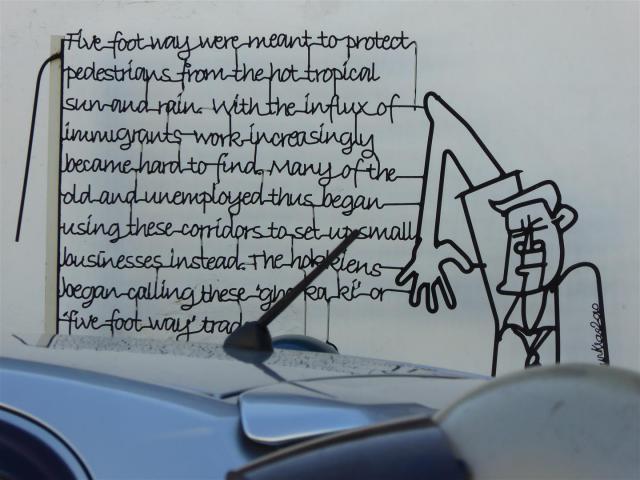 Five foot way were meant to protect
pedestrians from the hot tropical
sun and rain. With the influx of
immigrants work increasingly
became hard to find. Many of the
old and unemployed thus began
using these corridors to set up small
businesses instead. The hokkiens
began calling these 'gho ka ki' or
'five foot way'